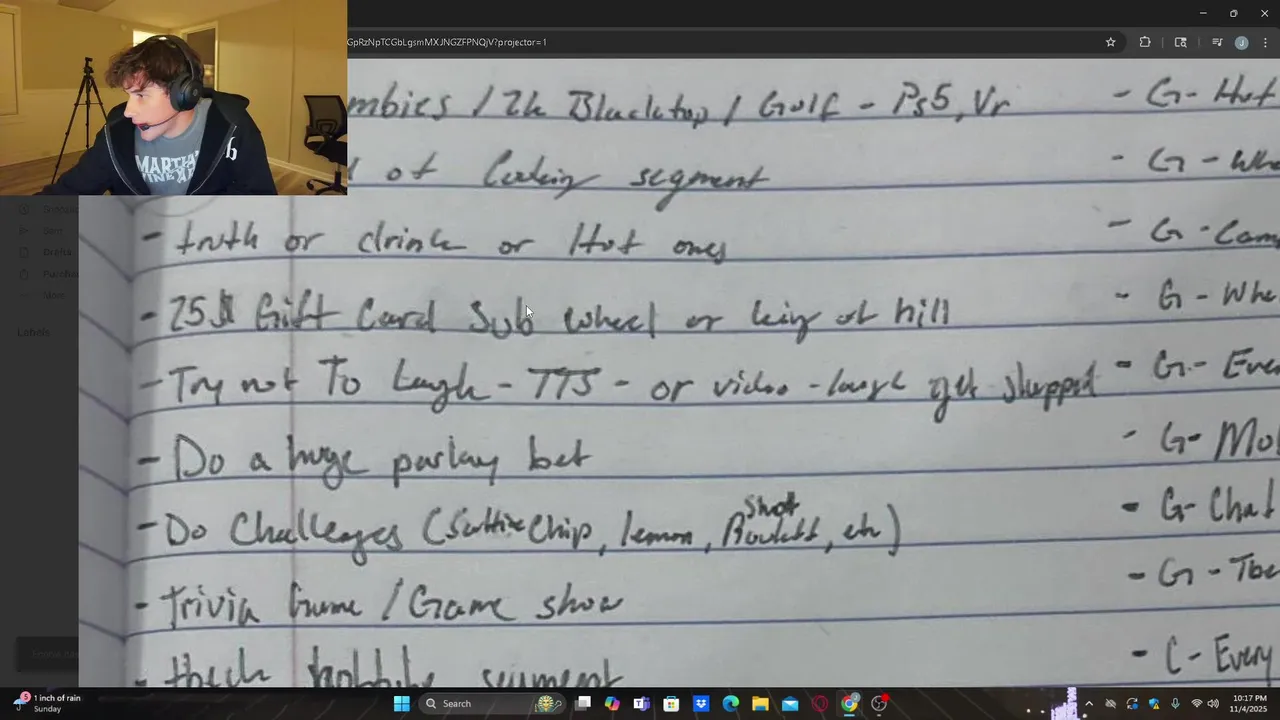 GpRzNpTCGbLgsmMXJNGZFPNQjV?projector=1
mbies / 2k Blacktop / Golf - Ps5, Vr
- G - Hot
of Cooking segment
- G - Whe
- truth or drink or Hot ones
- G - Cam
- 25$ Gift Card Sub wheel or king of hill
- G - Whe
- Try not To Laugh - TTS - or video - laugh get slapped
- G - Even
- Do a huge parlay bet
- G - Mo
- Do Challenges ( Chip, lemon, Shot Roulett, etc)
- G - Chat
- Trivia Game / Game show
- G -
segment
- C - Every
MARTIAL
Drafts
Labels
1 inch of rain
Sunday
Search
10:17 PM
11/4/2025